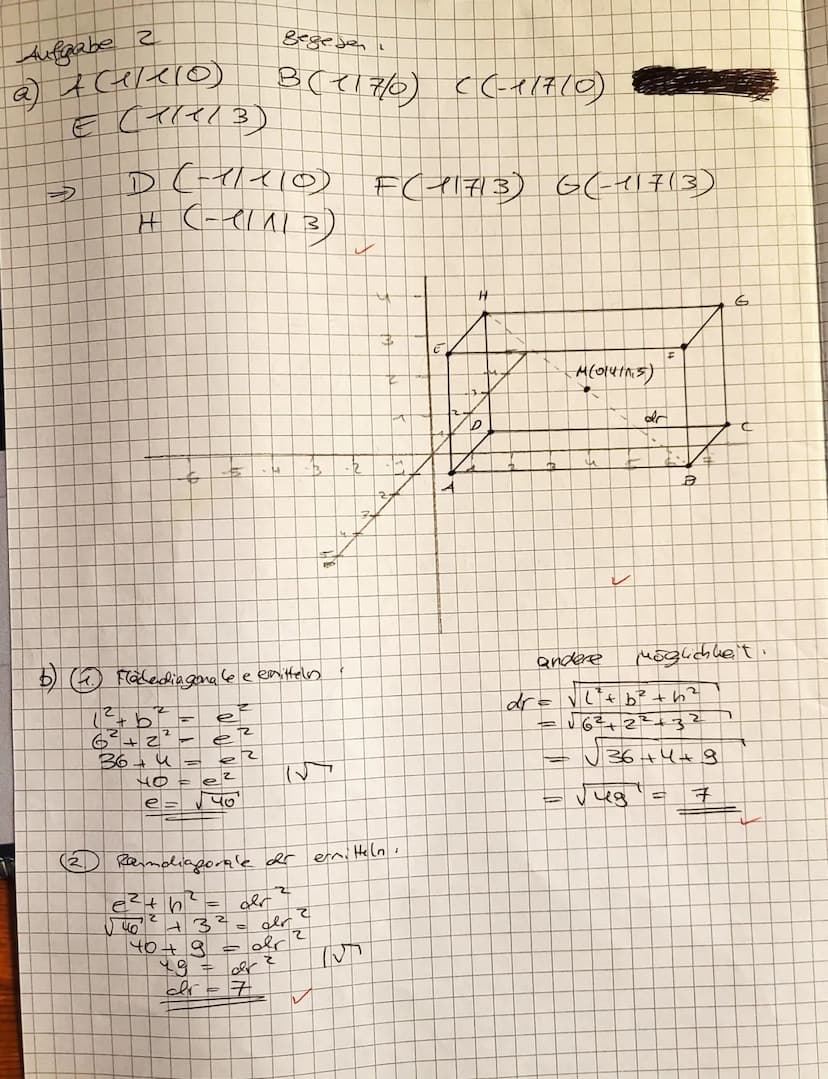 Aufgabe 2 gegeben:
a) A(1/1/0) B(1/7/0) C(-1/7/0)
E (1/1/3)
⇒ D (-1/1/0) F(1/7/3) G(-1/7/3)
H (-1/1/3)
4 H G
3 E F
2 4 M(0/4/1,5)
3
1 2 D dr C
1
-6 -5 -4 -3 -2 -1 1 2 3 4 5 6 7
1 A B
2
3
4
5
b) (1.) Flächediagonale e ermitteln:
l² + b² = e²
6² + 2² = e²
36 + 4 = e²
40 = e² |√
e = √40
andere Möglichkeit:
dr = √l² + b² + h²
= √6² + 2² + 3²
= √36 + 4 + 9
= √49 = 7
(2.) Raumdiagonale dr ermitteln:
e² + h² = dr²
√40² + 3² = dr²
40 + 9 = dr²
49 = dr² |√
dr = 7